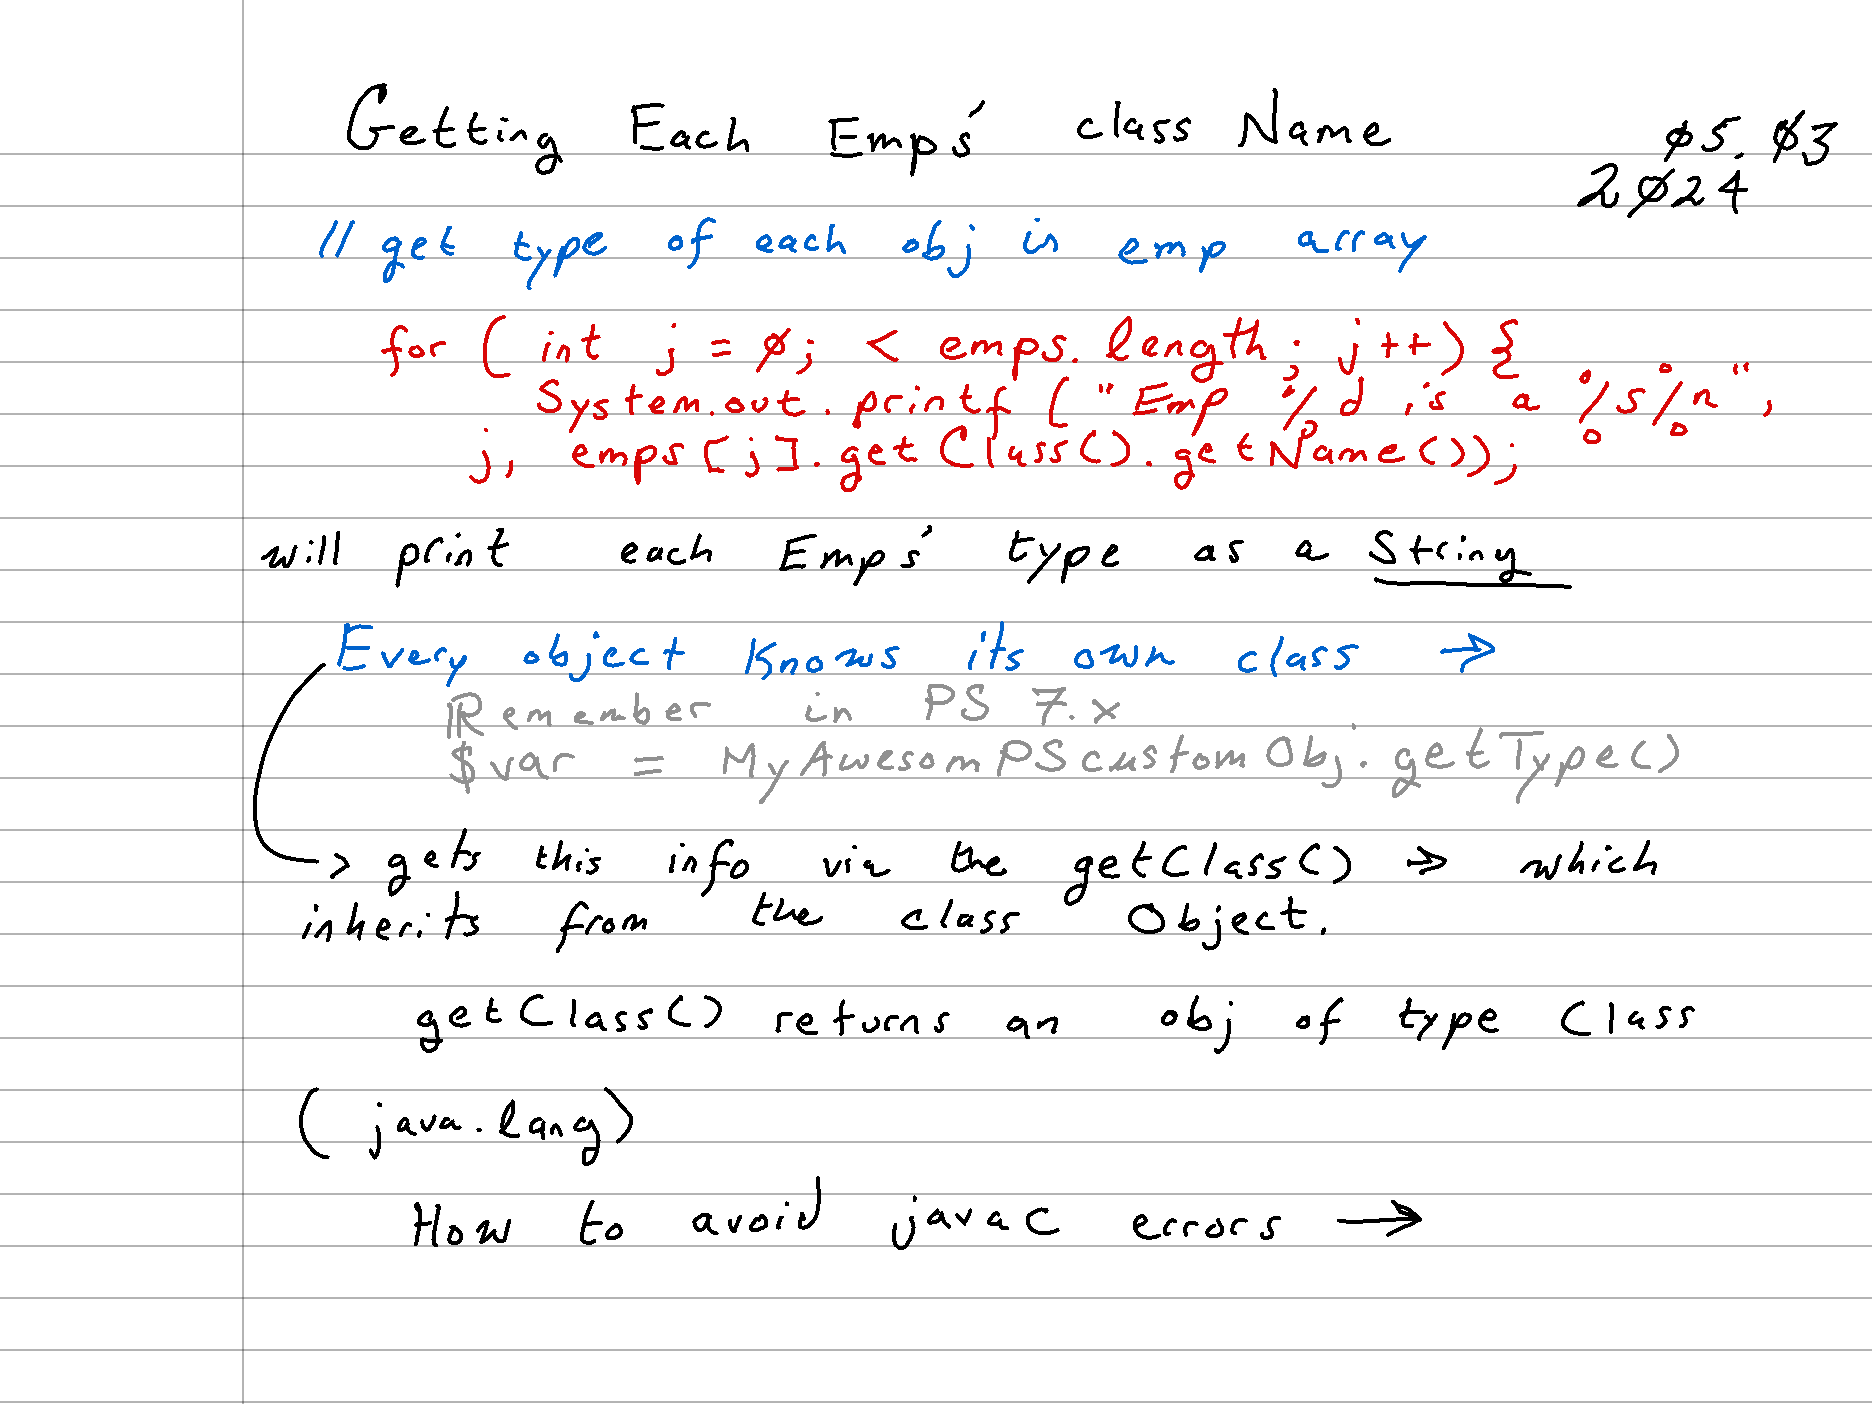 Getting Each Emps' class Name
ø5.ø3
2ø24
// get type of each obj in emp array
for ( int j = ø; < emps.length; j++) {
System.out.printf ( "Emp %d is a %s%n",
j, emps[j].getClass().getName());
will print each Emps' type as a String
Every object knows its own class →
Remember in PS 7.x
$var = MyAwesomPScustomObj.getType()
> gets this info via the getClass() → which
inherits from the class Object.
getClass() returns an obj of type Class
( java.lang)
How to avoid javac errors →